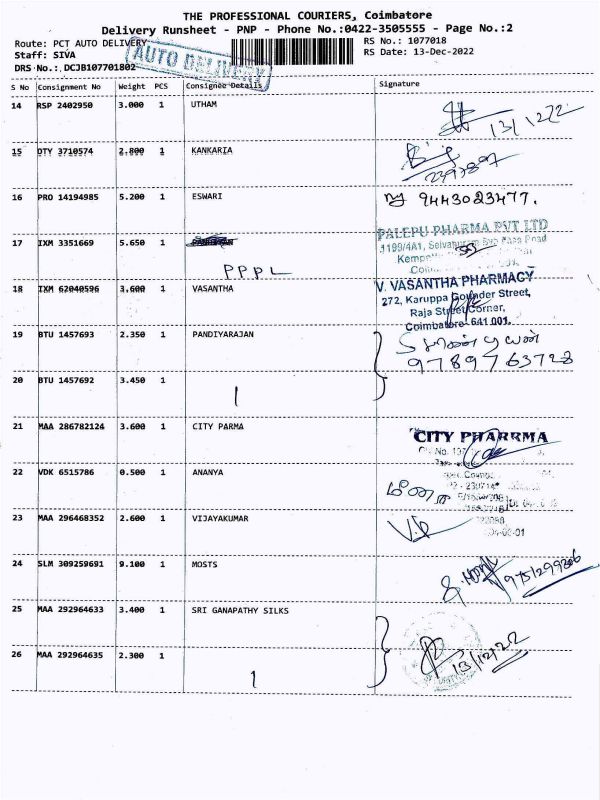 THE PROFESSIONAL COURIERS, Coimbatore
Delivery Runsheet - PNP - Phone No.:0422-3505555 - Page No.:2
Route: PCT AUTO DELIVERY
RS No.: 1077018
Staff: SIVA
RS Date: 13-Dec-2022
DRS No.: DCJB107701802
AUTO DELIVERY
S No Consignment No Weight PCS Consignee Details Signature
14 RSP 2402950 3.000 1 UTHAM
13/12/22
15 OTY 3710574 2.800 1 KANKARIA
16 PRO 14194985 5.200 1 ESWARI
9443023477.
PALEPU PHARMA PVT LTD
17 IXM 3351669 5.650 1
PPPL
18 IXM 62040596 3.600 1 VASANTHA
V. VASANTHA PHARMACY
272, Karuppa Gounder Street,
Raja Street Corner,
Coimbatore- 641 001.
19 BTU 1457693 2.350 1 PANDIYARAJAN
9789763728
20 BTU 1457692 3.450 1
21 MAA 286782124 3.600 1 CITY PARMA
CITY PHARRMA
22 VDK 6515786 0.500 1 ANANYA
மீனா
23 MAA 296468352 2.600 1 VIJAYAKUMAR
24 SLM 309259691 9.100 1 MOSTS
25 MAA 292964633 3.400 1 SRI GANAPATHY SILKS
26 MAA 292964635 2.300 1
13/12/22